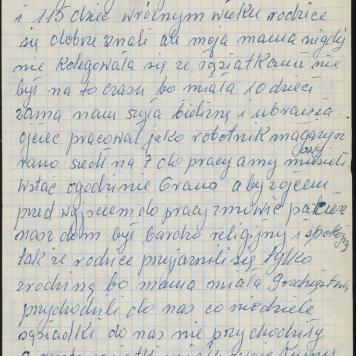 i 115 dzieci w różnym wieku rodzice
się dobrze znali ale moja mama nigdy
nie kolegowała się ze sąsiatkami nie
był na to czasu bo miała 10 dzieci
sama nam szyła bieliznę i ubrania
ojciec pracował jako robotnik magazyn
rano szedł na 7 do pracy a my musieli
wstać o godzinie 6 rano aby z ojcem
przed wyjściem do pracy zmówić pacierz
nasz dom był bardzo religijny i spokojny
tak że rodzice przyjaźnili się tylko
z rodziną bo mama miała
przychodzili do nas co niedziele
sąsiadki do nas nie przychodziły